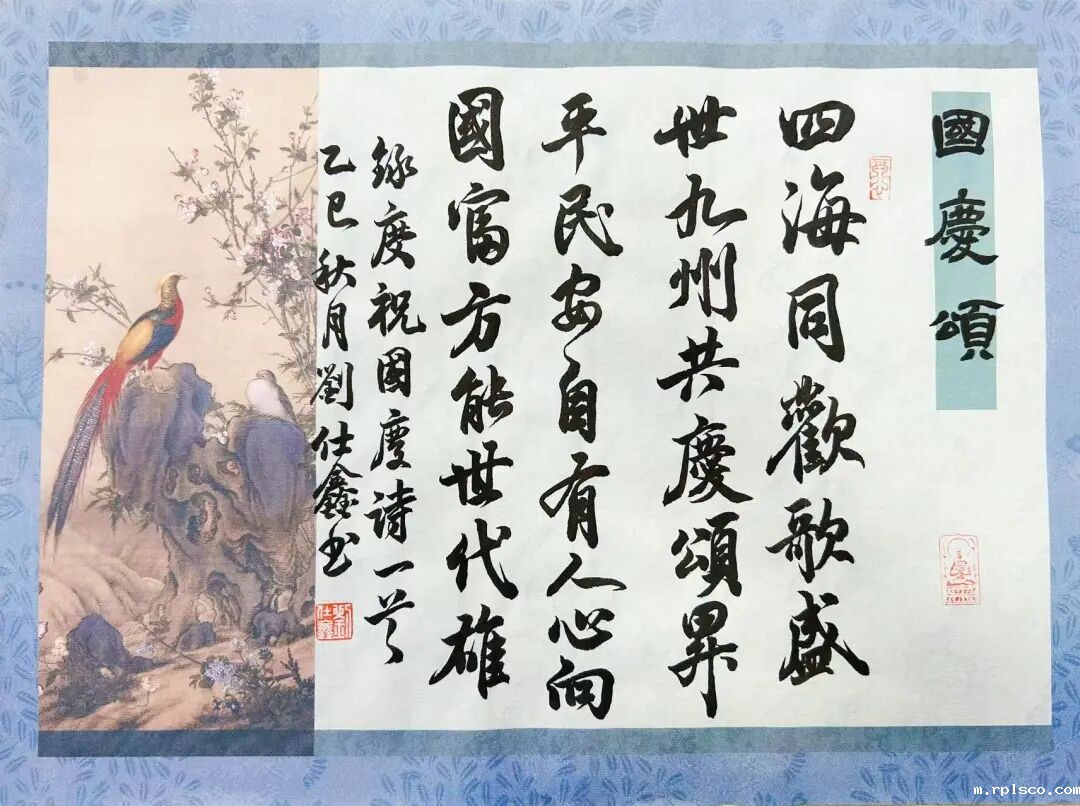 國慶頌
四海同歡歌盛
世九州共慶頌昇
平民安自有人心向
國富方能世代雄
錄度祝國慶诗一首
乙巳秋月劉仕鑫书
劉仕鑫
m.rplsco.com